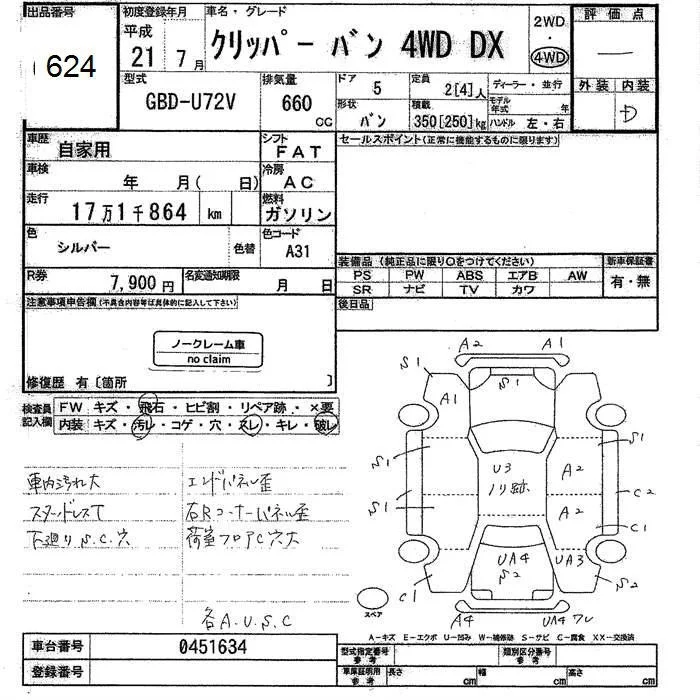 出品番号
624
初度登録年月
平成
21 7月
車名・グレード
クリッパー バン 4WD DX
2WD
・
4WD
評価点
—
外装 内装
D
型式
GBD-U72V
排気量
660
CC
ドア
5
定員
2[4]人
ディーラー・並行
形状
バン
積載
350[250]kg
モデル年式 年
ハンドル 左・右
車歴
自家用
シフト
FAT
セールスポイント(正常に機能するものに限ります)
車検
年 月( 日)
冷房
AC
走行
17万1千864 km
燃料
ガソリン
色
シルバー
色替
色コード
A31
R券
7,900円
名変通知期限
月 日
装備品(純正品に限り○をつけてください)
新車保証書
PS PW ABS エアB AW
SR ナビ TV カワ
有・無
後日品
注意事項申告欄(不具合内容等は具体的に記入して下さい)
ノークレーム車
no claim
修復歴 有〔箇所 〕
検査員記入欄
FW キズ・飛石・ヒビ割・リペア跡・×要
内装 キズ・汚レ・コゲ・穴・スレ・キレ・破レ
車内汚れ大
スタッドレスT
下廻りS.C.穴
エンドパネル歪
右Rコーナーパネル歪
荷室フロアC穴大
各A.U.S.C
A2 A1
S1 S1
A1
S1 S1
U3
ノリ跡
A2
A2
S1
C2
C1
UA4
S2
UA3
C1 S2
A4 UA4 ワレ
スペア
A−キズ E−エクボ U−凹み W−補修跡 S−サビ C−腐食 XX−交換済
車台番号
0451634
登録番号
型式指定番号
参考
類別区分番号
参考
車庫証明用
参考
長さ cm
幅 cm
高さ cm